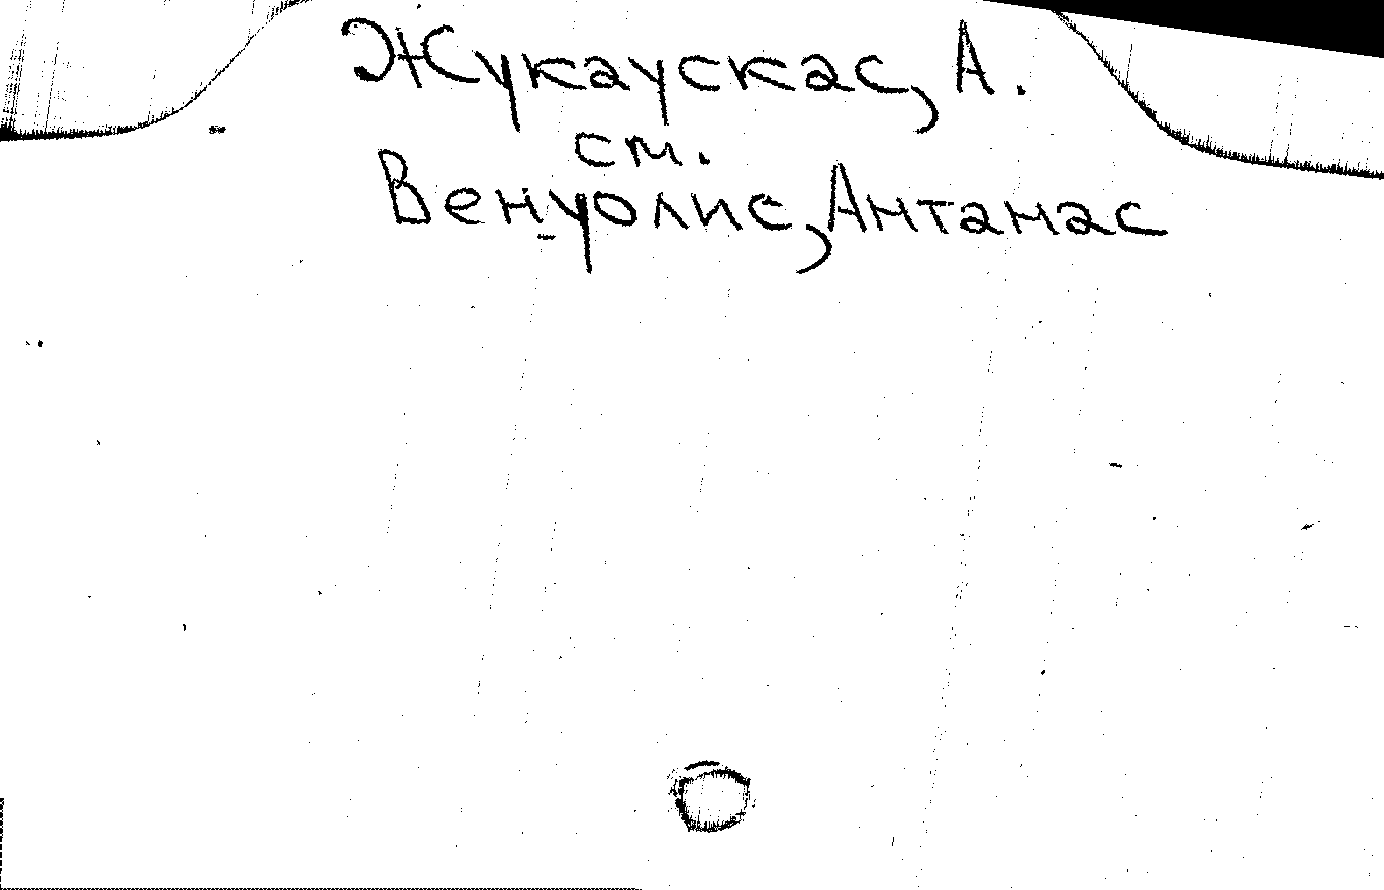 Жукаускас, А.
см.
Венуолис, Антанас